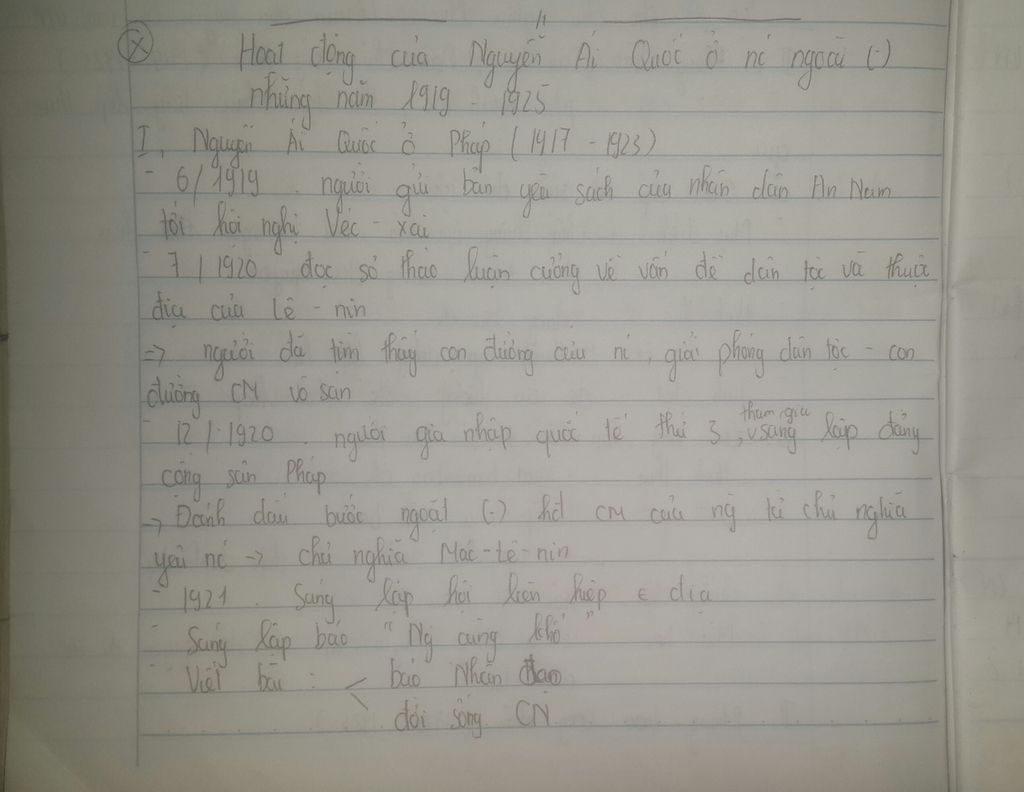 Ⓧ Hoạt động của Nguyễn Ái Quốc ở nc ngoài (.)
những năm 1919 - 1925
I, Nguyễn Ái Quốc ở Pháp (1917 - 1923)
- 6/1919. người gửi bản yêu sách của nhân dân An Nam
tới hội nghị Véc - xai
- 7/1920 đọc sơ thảo luận cương về vấn đề dân tộc và thuộc
địa của Lê - nin
-> người đã tìm thấy con đường cứu nc, giải phóng dân tộc - con
đường CM vô sản
- 12/1920. người gia nhập quốc tế thứ 3, tham gia sáng lập đảng
cộng sản Pháp
-> Đánh dấu bước ngoặt (.) hđ CM của ng từ chủ nghĩa
yêu nc -> chủ nghĩa Mác-Lê-nin
- 1921. Sáng lập hội liên hiệp € địa
- Sáng lập báo "Ng cùng khổ"
- Viết bài : < báo Nhân đạo
đời sống CN